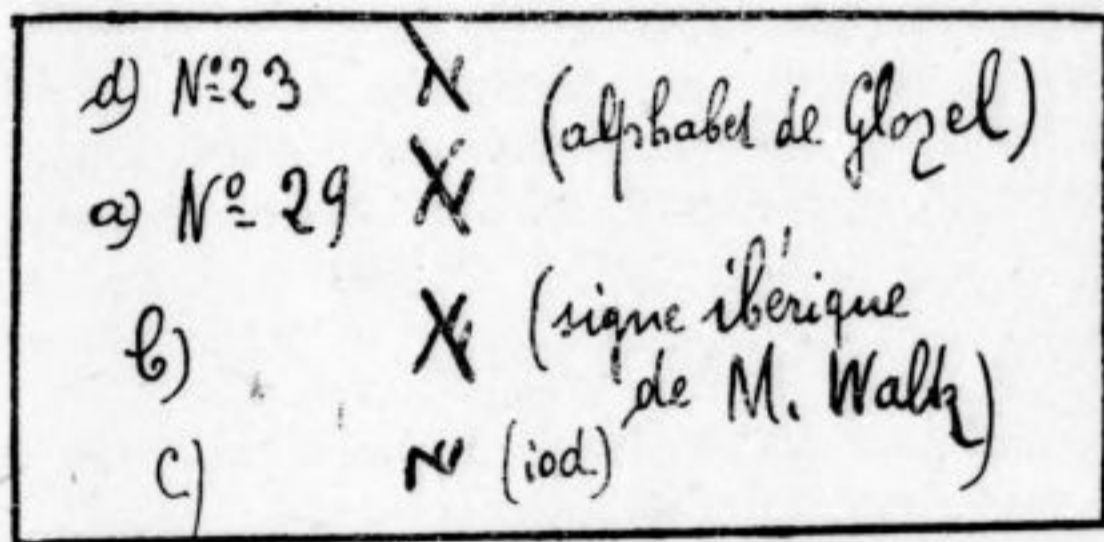 d) Nº 23 (alphabet de Glozel)
a) Nº 29
b) X (signe ibérique
de M. Waltz)
c) (iod)